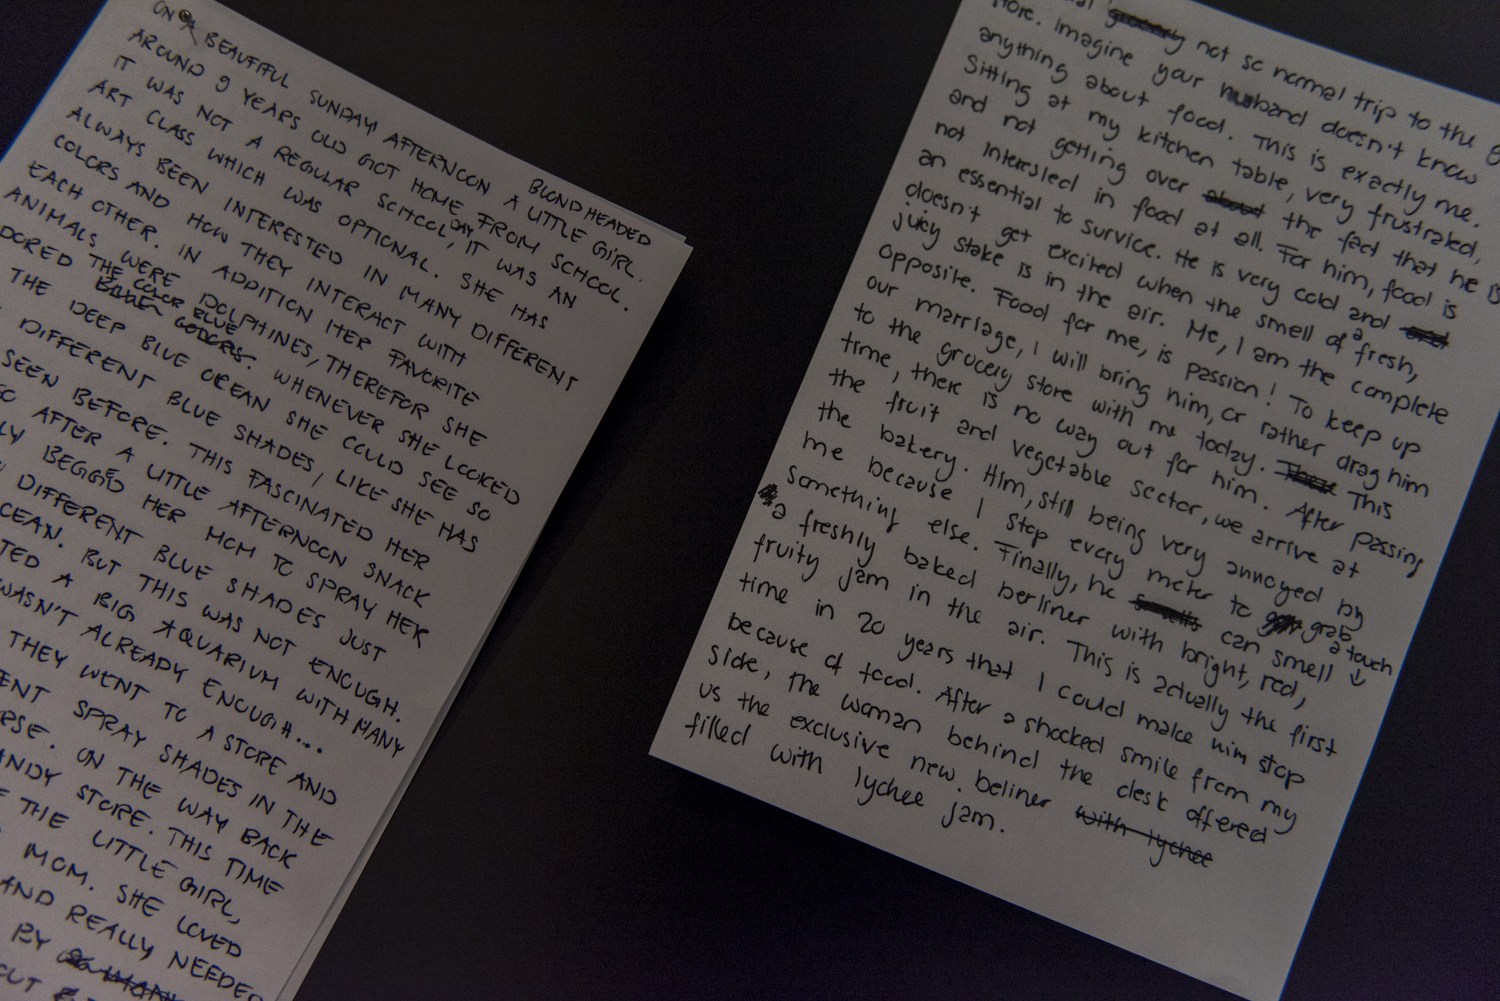 ON A BEAUTIFUL SUNDAY AFTERNOON A LITTLE BLONDHEADED GIRL
AROUND 9 YEARS OLD GOT HOME FROM SCHOOL.
IT WAS NOT A REGULAR SCHOOLDAY, IT WAS AN
ART CLASS WHICH WAS OPTIONAL. SHE HAS
ALWAYS BEEN INTERESTED IN MANY DIFFERENT
COLORS AND HOW THEY INTERACT WITH
EACH OTHER. IN ADDITION HER FAVORITE
ANIMALS WERE DOLPHINES, THEREFOR SHE
THE COLOR BLUE. WHENEVER SHE LOOKED
THE DEEP BLUE OCEAN SHE COULD SEE SO
DIFFERENT BLUE SHADES, LIKE SHE HAS
SEEN BEFORE. THIS FASCINATED HER
AFTER A LITTLE AFTERNOON SNACK
BEGGED HER MOM TO SPRAY HER
DIFFERENT BLUE SHADES JUST
BUT THIS WAS NOT ENOUGH.
A BIG AQUARIUM WITH MANY
WASN'T ALREADY ENOUGH...
THEY WENT TO A STORE AND
SPRAY SHADES IN THE
ON THE WAY BACK
STORE. THIS TIME
THE LITTLE GIRL,
MOM. SHE LOVED
AND REALLY NEEDED
BY
not so normal trip to the
store. Imagine your husband doesn't know
anything about food. This is exactly me.
Sitting at my kitchen table, very frustrated,
and not getting over the fact that he is
not intersted in food at all. For him, food is
an essential to survice. He is very cold and
doesn't get excited when the smell of a fresh,
juicy stake is in the air. Me, I am the complete
opposite. Food for me, is passion! To keep up
our marriage, I will bring him, or rather drag him
to the grocery store with me today. This
time, there is no way out for him. After passing
the fruit and vegetable sector, we arrive at
the bakery. HIm, still being very annoyed by
me because I stop every meter to grab
something else. Finally, he can smell a touch
a freshly baked berliner with bright, red,
fruity jam in the air. This is actually the first
time in 20 years that I could make him stop
because of food. After a shocked smile from my
side, the woman behind the desk offered
us the exclusive new beliner with lychee
filled with lychee jam.